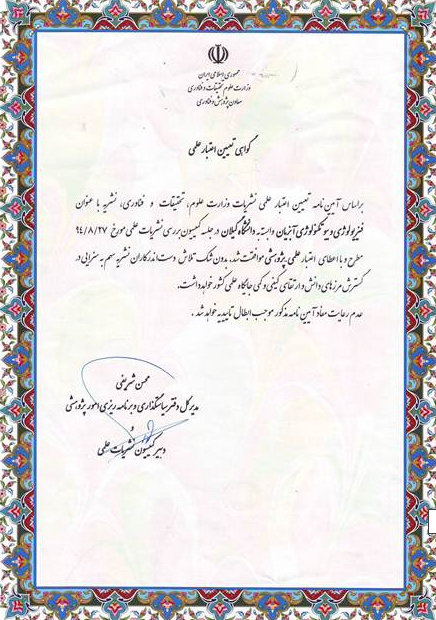 جمهوری اسلامی ایران
وزارت علوم تحقیقات و فناوری
معاون پژوهش و فناوری
گواهی تعیین اعتبار علمی
براساس آیین نامه تعیین اعتبار علمی نشریات وزارت علوم، تحقیقات و فناوری، نشریه با عنوان
فیزیولوژی و بیوتکنولوژی آبزیان وابسته به دانشگاه گیلان در جلسه کمیسیون بررسی نشریات علمی مورخ ۹۴/۸/۲۷
مطرح و با اعطای اعتبار علمی پژوهشی موافقت شد. بدون شک تلاش دست اندرکاران نشریه سهم به سزایی در
گسترش مرزهای دانش و ارتقای کیفی و کمی جایگاه علمی کشور خواهد داشت.
عدم رعایت مفاد آیین نامه مذکور موجب ابطال تاییدیه خواهد شد.
محسن شریفی
مدیر کل دفتر سیاستگذاری و برنامه ریزی امور پژوهشی
و
دبیر کمیسیون نشریات علمی